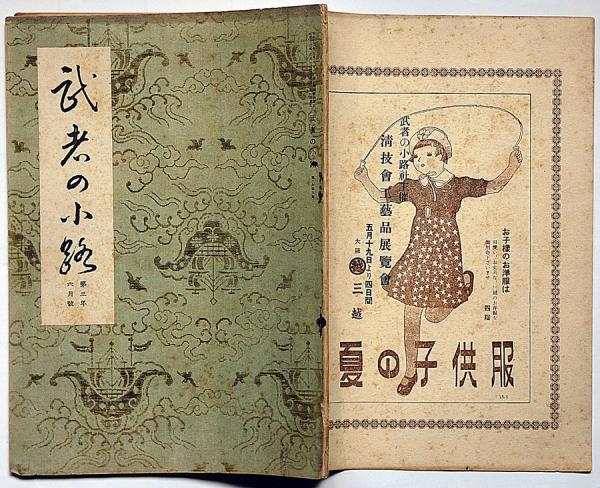 武者の小路
第三年
六月號
武者の小路社主催
淸技會工藝品展覽會
五月十九日より四日間
大阪 三越
お子様のお洋服は
四階
夏の子供服